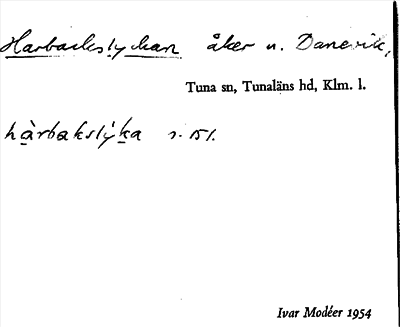 Harbackslyckan åker u. Danevik,
Tuna sn, Tunaläns hd, Klm. l.
hàrbakslýka s. 151.
Ivar Modéer 1954